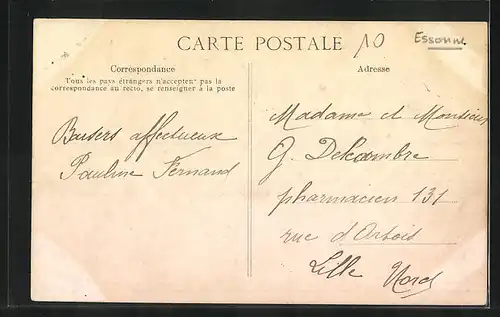 CARTE POSTALE
10
Essonne
Correspondance
Tous les pays étrangers n'acceptent pas la
correspondance au recto, se renseigner à la poste
Adresse
Baisers affectueux
Pauline Fernand
Madame et Monsieur
G. Delcambre
pharmacien 131
rue d'Artois
Lille Nord